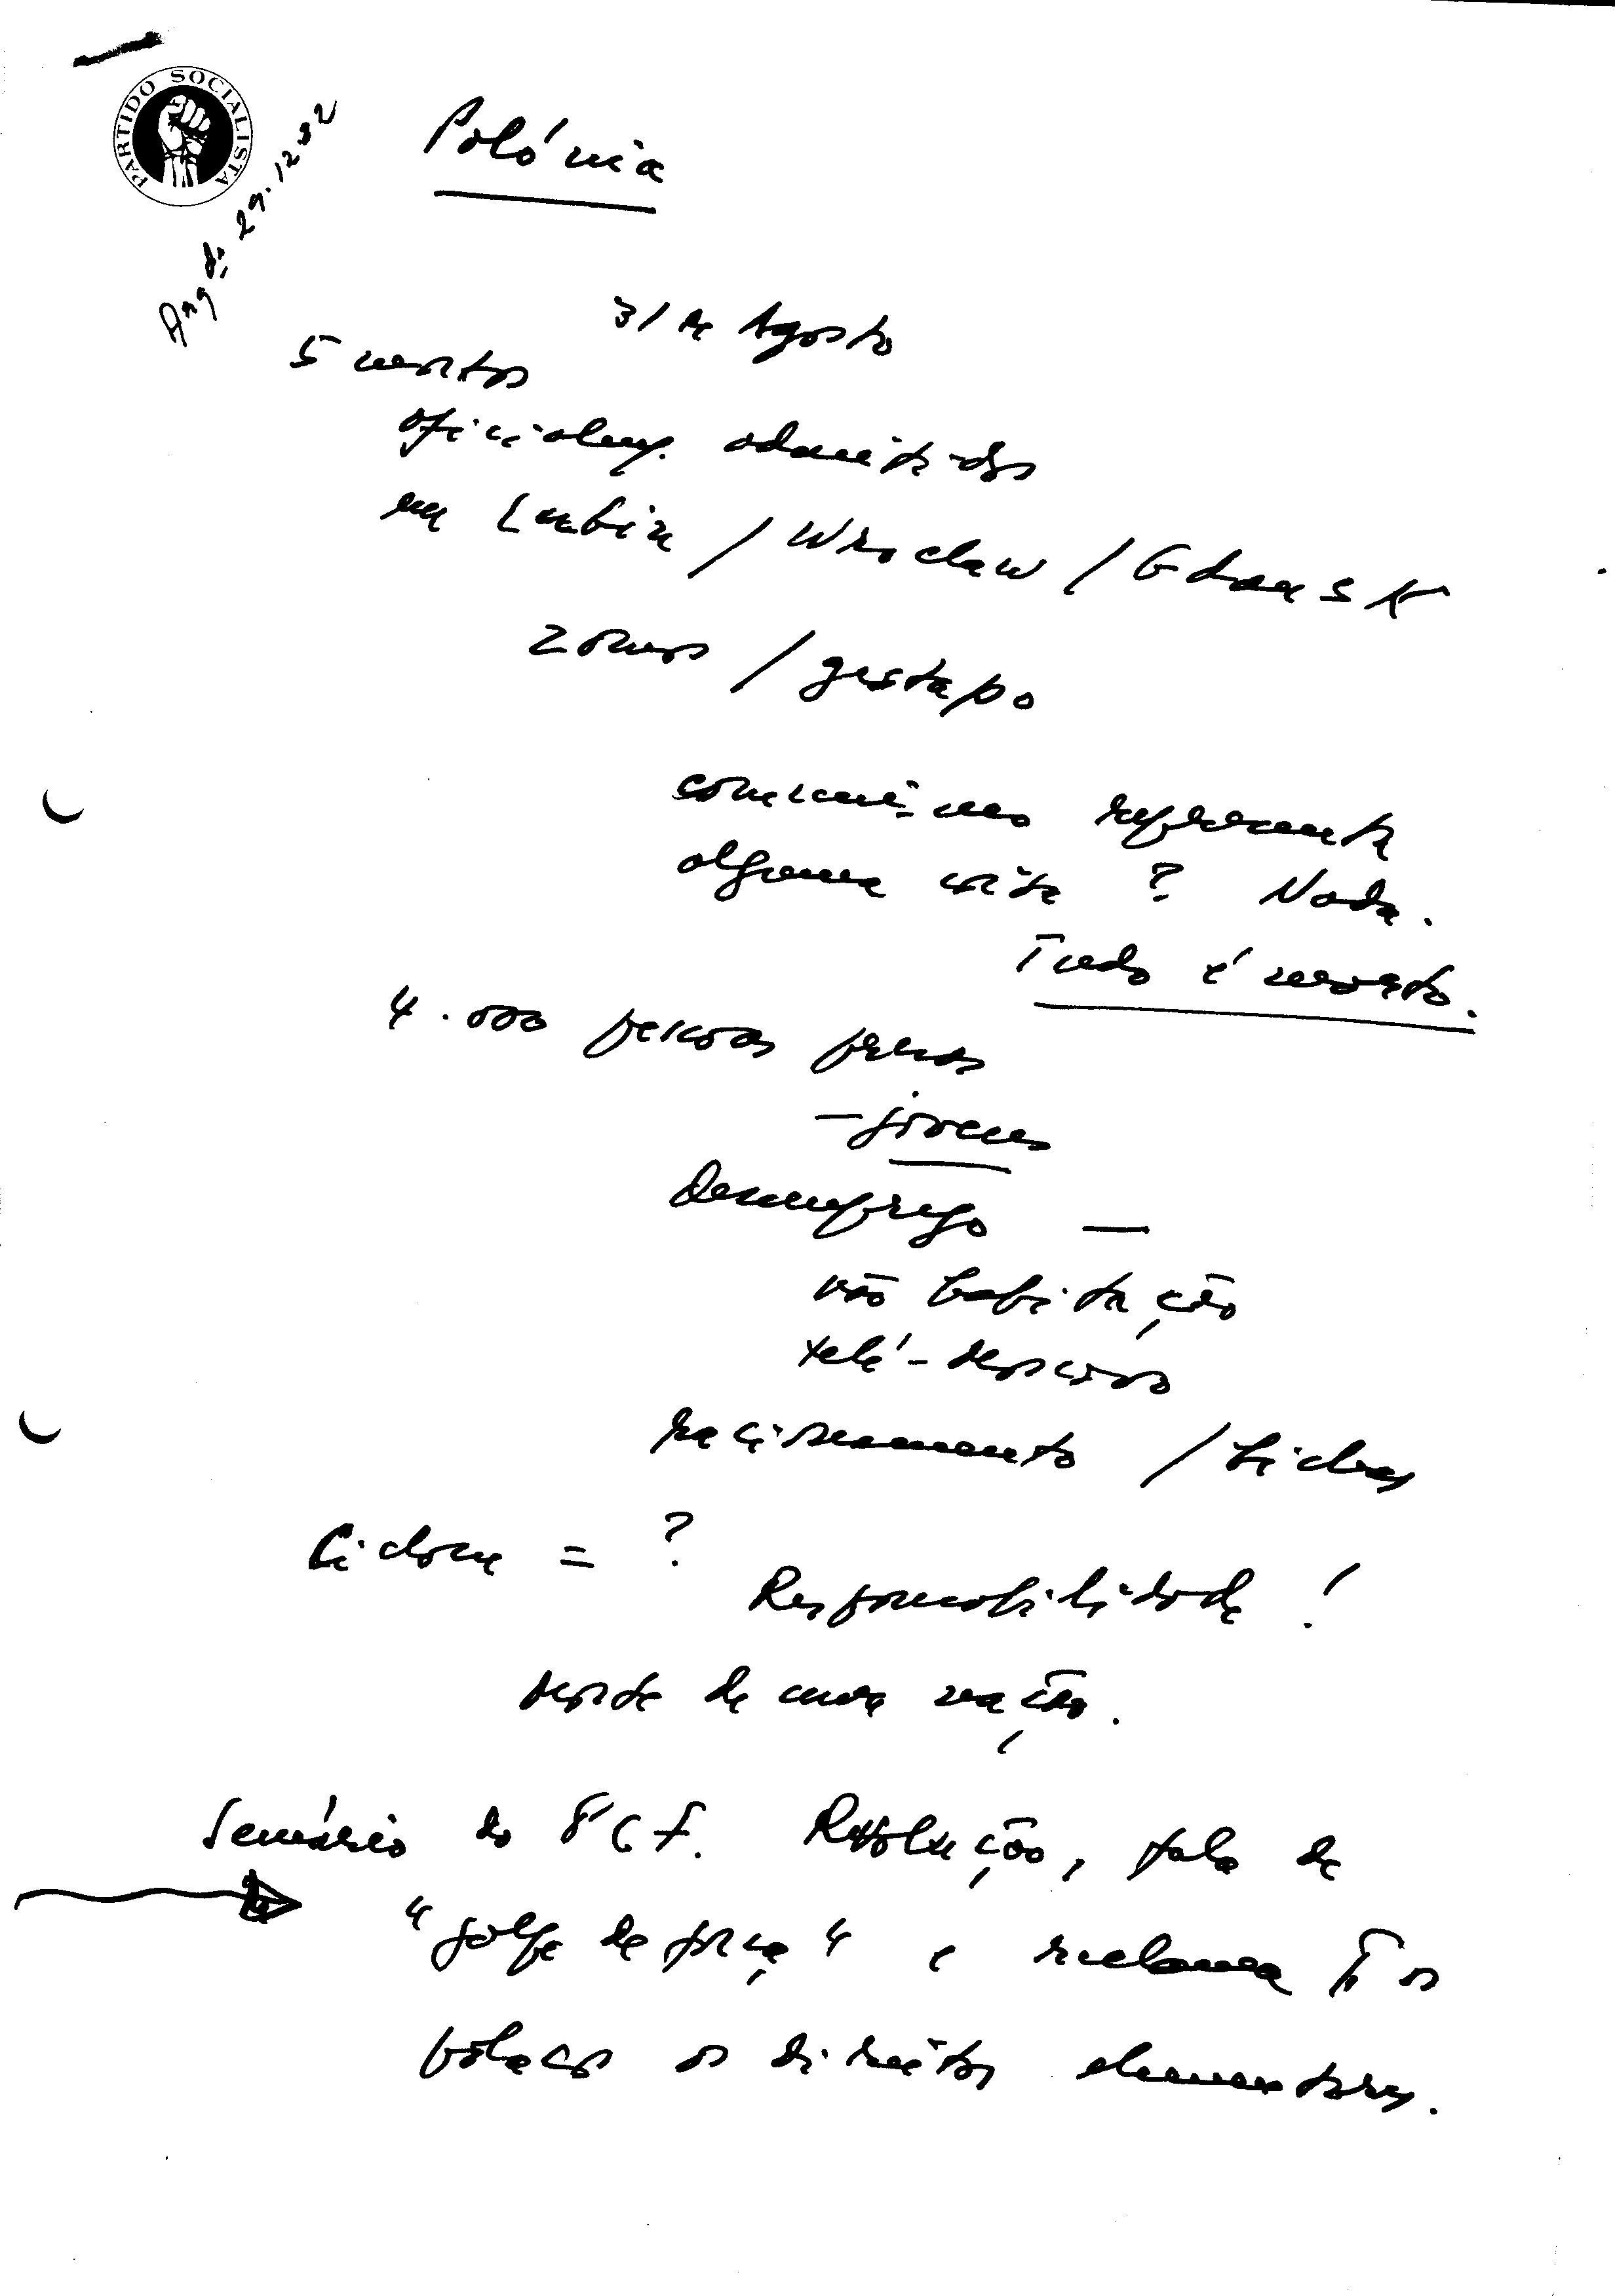 PARTIDO SOCIALISTA
Polónia
Arq. 29.12.82
31 de Agosto
5 mortos
oficialm. admitidos
em Lubin / Wroclaw / Gdansk
zomos / gestapo
comunismo representa
alguma coisa ? Nada.
Tudo é morto.
4.000 pessoas presas
- jovens
Desemprego —
não habitação
racionamento / bichas
Ciclone = ?
Responsabilidade !
morte de uma nação.
Semanário do PCF. Révolução, fala de
"golpe de força" e reclama p os
polacos os direitos elementares.